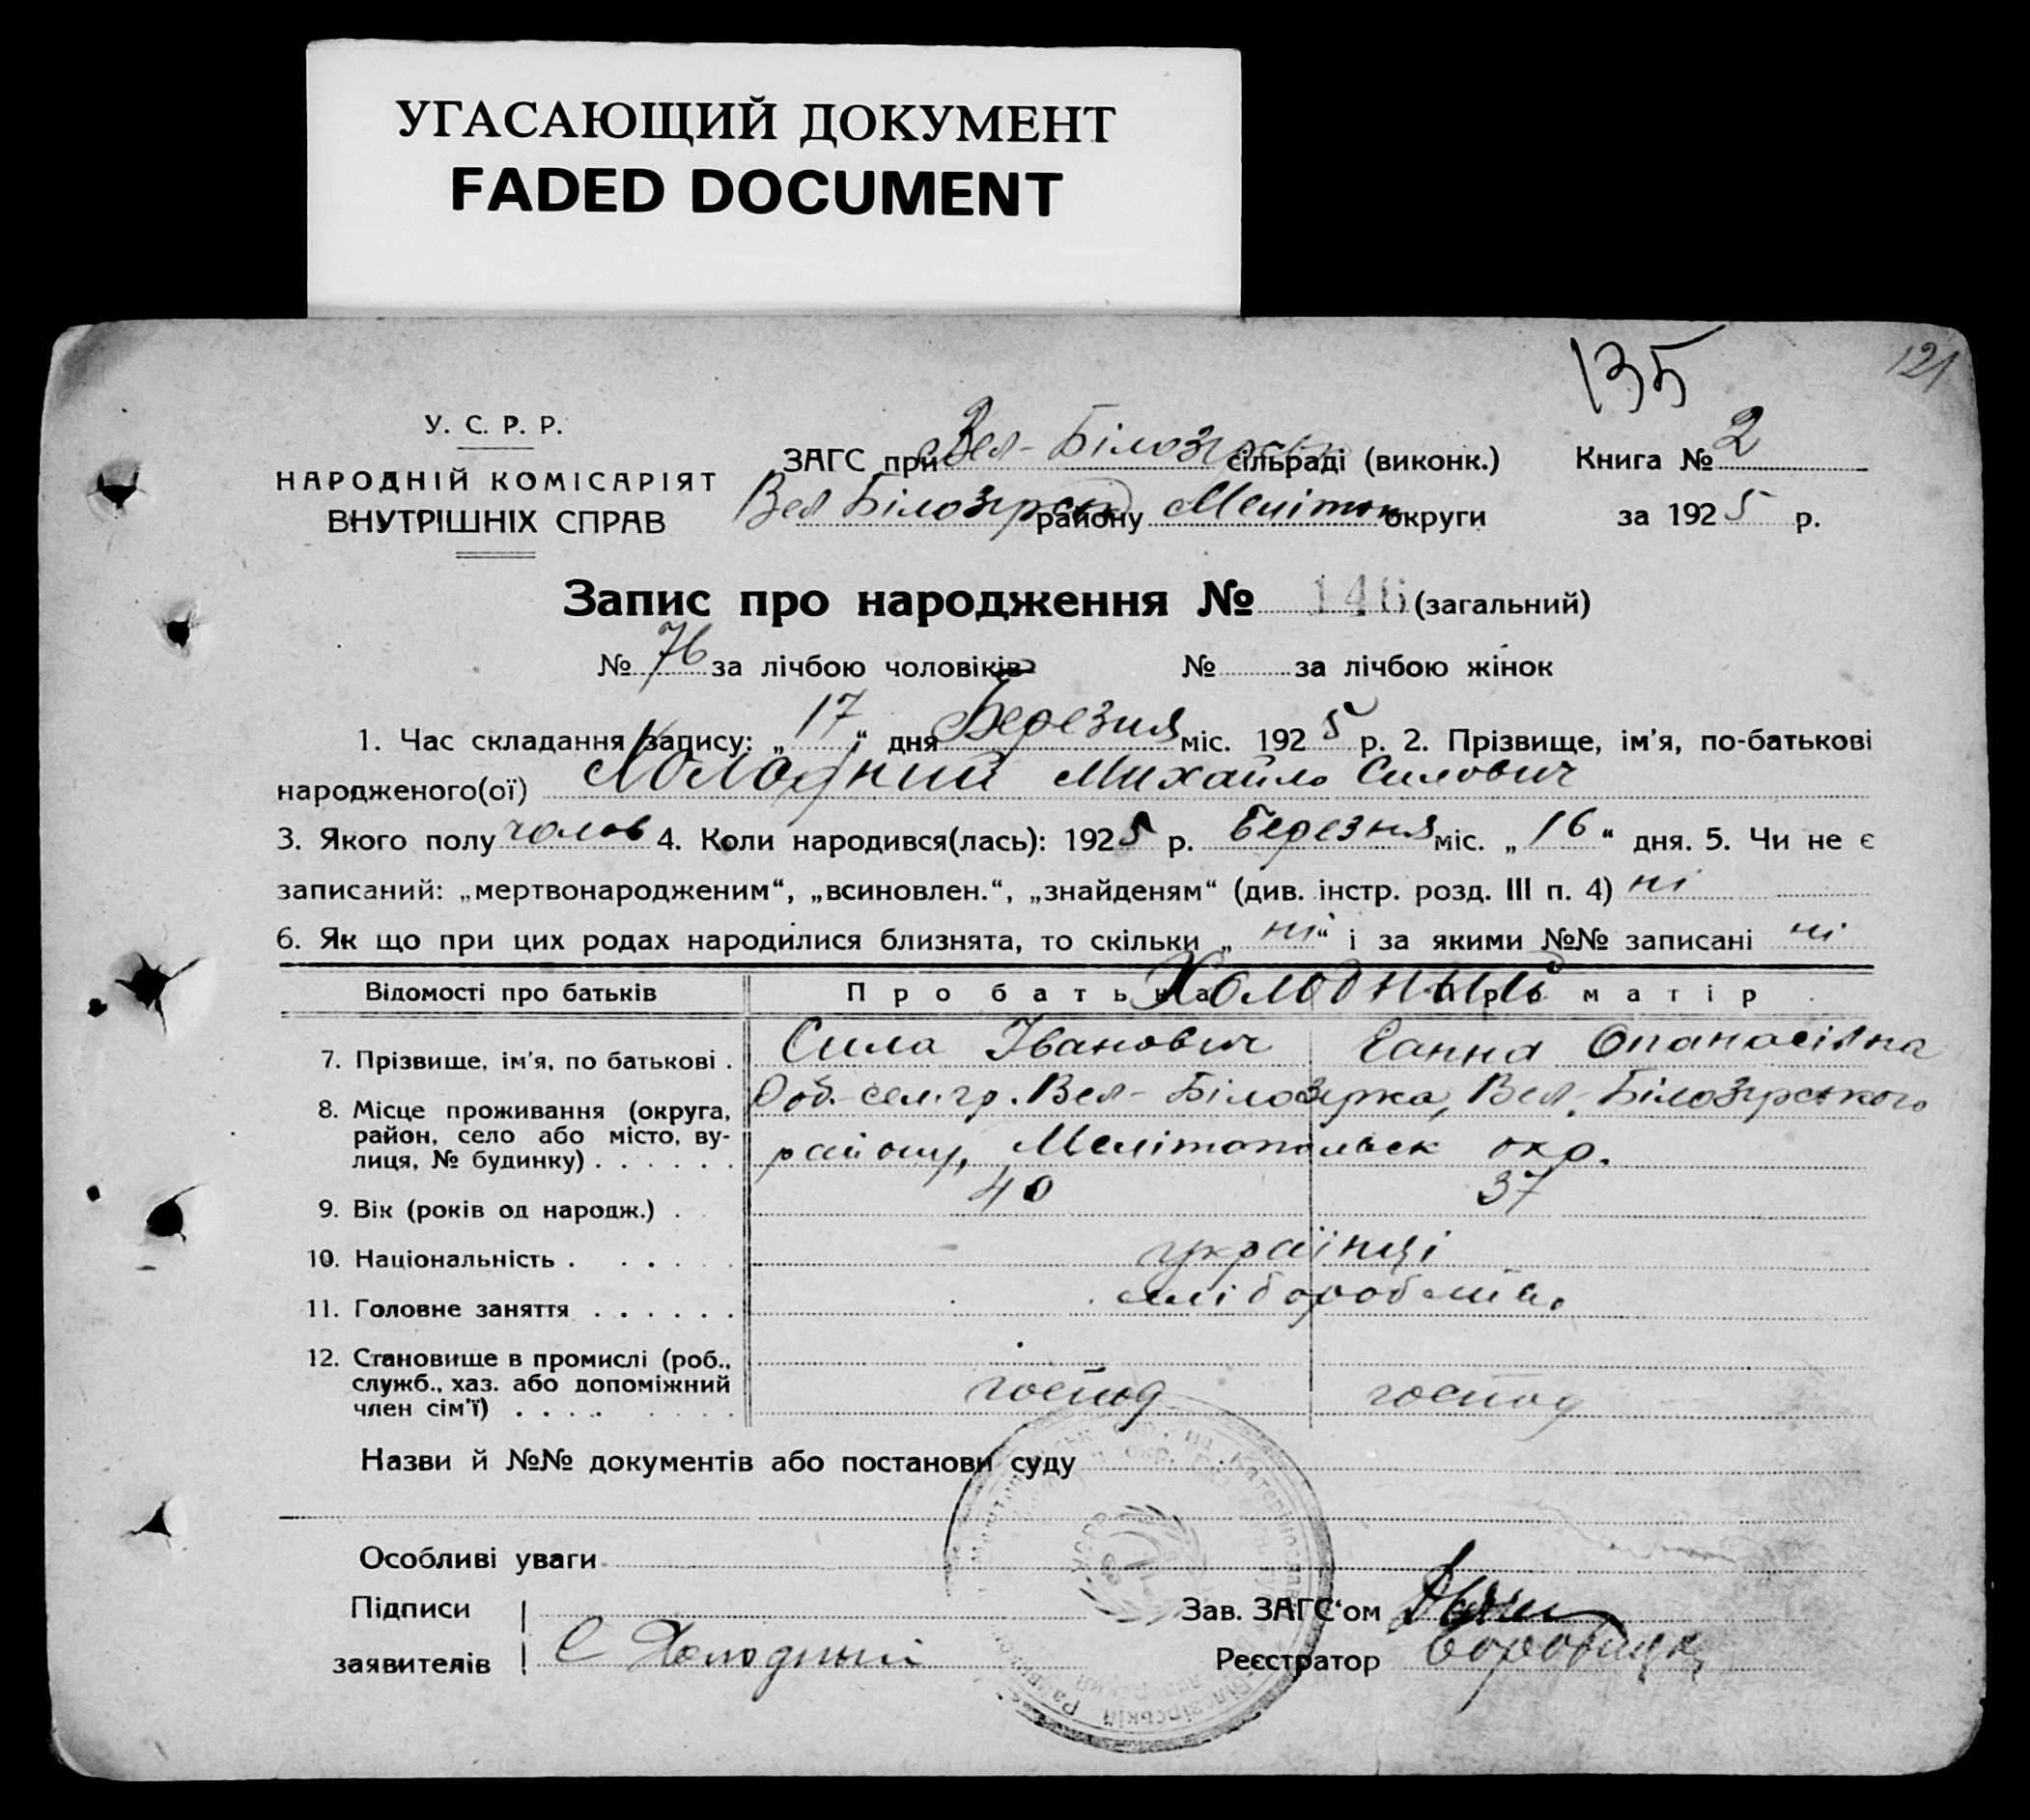 УГАСАЮЩИЙ ДОКУМЕНТ
FADED DOCUMENT
135
121
У. С. Р. Р.
НАРОДНІЙ КОМІСАРІЯТ
ВНУТРІШНІХ СПРАВ
ЗАГС при Вел-Білозірськ сільраді (виконк.)
Вел Білозірськ району Меліток округи
Книга № 2
за 1925 р.
Запис про народження № 146 (загальний)
№ 76 за лічбою чоловіків № за лічбою жінок
1. Час складання запису: „17“ дня Березня міс. 1925 р. 2. Прізвище, ім'я, по-батькові
народженого(ої) Холодний Михайло Силович
3. Якого полу чолов 4. Коли народився(лась): 1925 р. Березня міс. „16“ дня. 5. Чи не є
записаний: „мертвонародженим“, „всиновлен.“, „знайденям“ (див. інстр. розд. III п. 4) ні
6. Як що при цих родах народилися близнята, то скільки „ні“ і за якими №№ записані ні
Відомості про батьків Про батька Про матір
Холодный
7. Прізвище, ім'я, по батькові . Сила Іванович Ганна Опанасівна
8. Місце проживання (округа, район, село або місто, вулиця, № будинку) . . . . . . сел. гр. Вел-Білозірка, Вел. Білозірського
району, Мелітопольск окр.
9. Вік (років од народж.) . 40 37
10. Національність . . . . українці
11. Головне заняття . . . . . . хліборобство
12. Становище в промислі (роб., служб., хаз. або допоміжний член сім'ї) . . . . господ господ
Назви й №№ документів або постанови суду
Особливі уваги
Підписи
заявителів С Холодный
Зав. ЗАГС'ом
Реєстратор